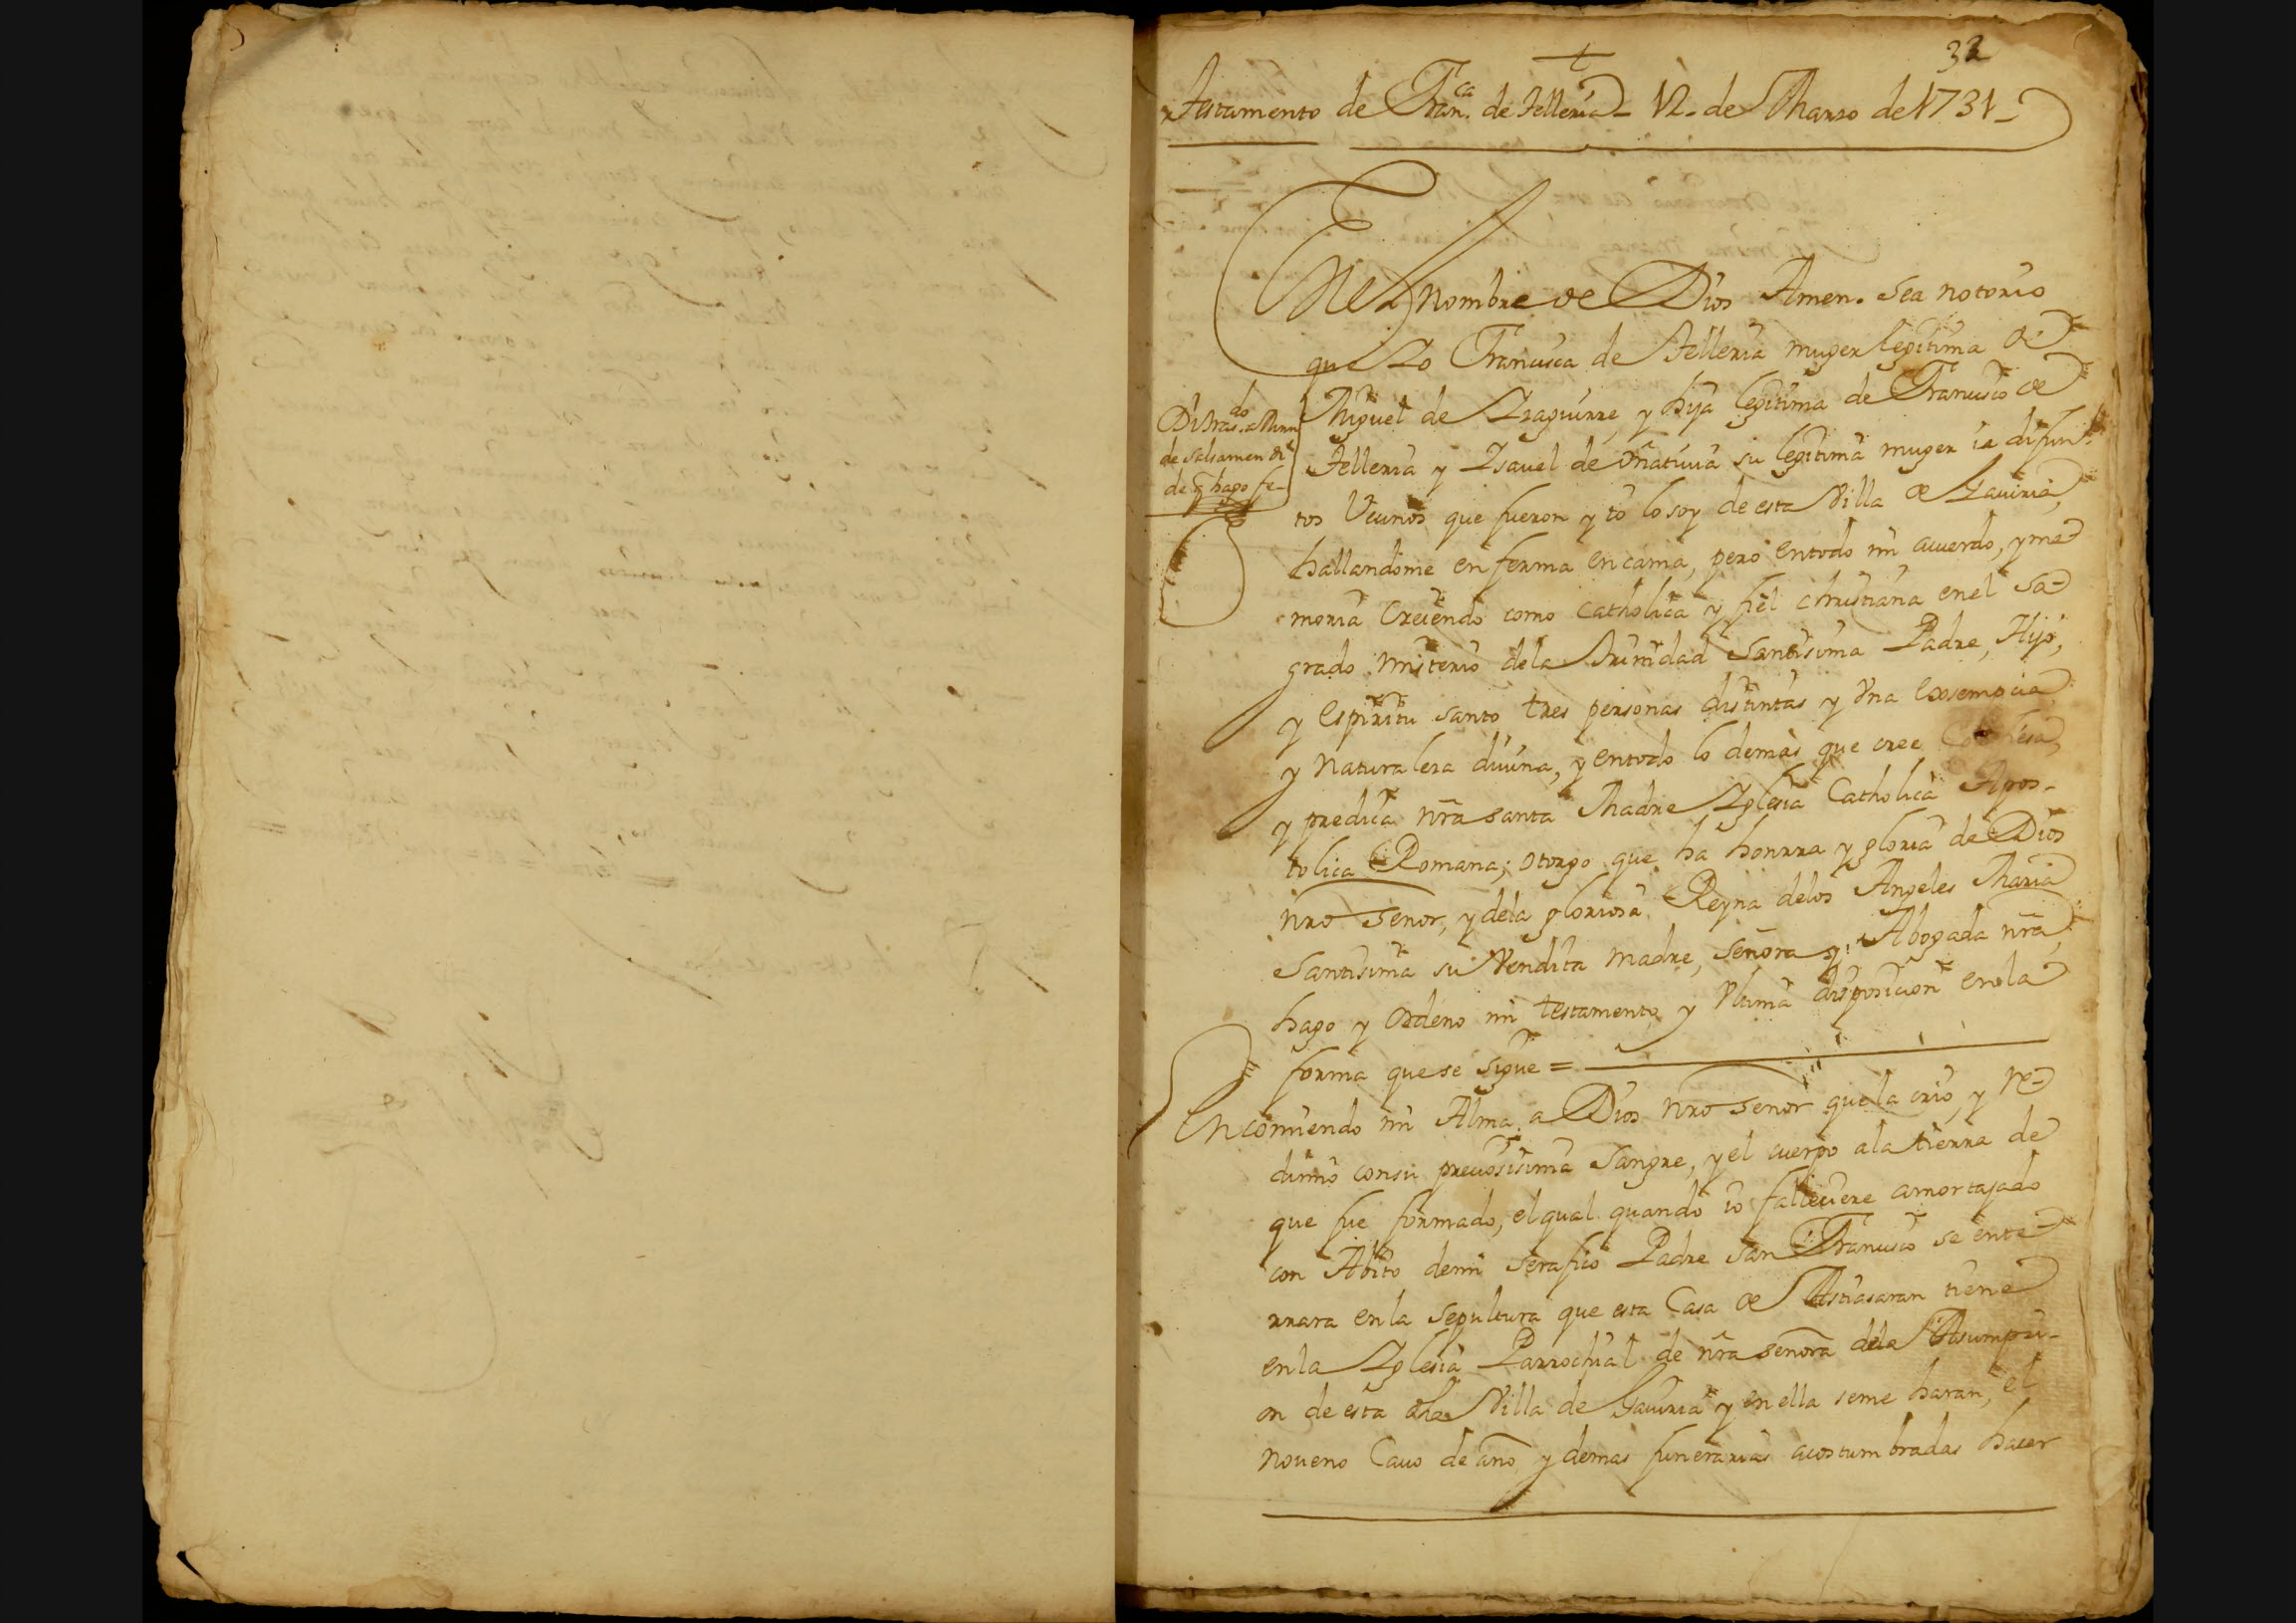 32
+
Testamento de Fran.ca de Telleria - 12 - de Marzo de 1731 -
En el nombre de Dios Amen. Sea notorio
que Yo Francisca de Telleria muger legitima de
Miguel de Yraguirre, y hija legitima de Francisco de
Telleria y Ysavel de Oñatiuia su legitima muger ia difun-
tos Vecinos que fueron y io lo soy de esta Villa de Gaviria,
hallandome enferma en cama, pero entodo mi acuerdo, y me
moria Creiendo como catholica y fiel christiana enel Sa-
grado misterio dela Trinidad Santisima Padre, Hijo,
y Espiritu santo tres personas distintas y Vna
y naturaleza diuina, y entodo lo demas que cree
y predica nra santa Madre Yglesia Catholica Apos-
tolica Romana; otorgo que ha honrra y gloria de Dios
nro señor, y dela gloriosa Reyna delos Angeles Maria
Santisima su Vendita madre, señora y Abogada nra,
hago y ordeno mi testamento y Vltima disposicion enla
forma que se sigue =
Encomiendo mi Alma a Dios nro señor que la crio, y re-
dimio consu preciosisima Sangre, y el cuerpo ala tierra de
que fue formado, el qual quando io falleciere amortajado
con Abito demi Serafico Padre san Francisco se ente-
rrara en la Sepultura que esta Casa de Astiasaran tiene
en la Yglesia Parrochial de nra señora dela Asumpci-
on de esta dha Villa de Gauiria y en ella seme haran, el
noueno Cauo de año y demas funerarias acostumbradas hacer
de Salsamendi
de q hago fe -